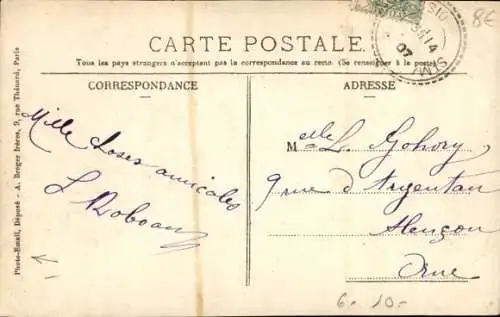 8€
CARTE POSTALE.
Tous les pays étrangers n'acceptent pas la correspondance au recto. (Se renseigner à la poste)
CORRESPONDANCE
ADRESSE
Mille choses amicales
Melle L. Gohory
9 rue d'Argentan
Alençon
Orne
Photo-Email, Déposé - A. Breger frères, 9, rue Thénard, Paris
07
6.- 10.-